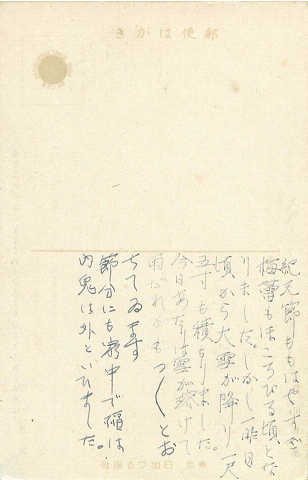 郵便はがき
紀元節ももはやすぎ
梅蕾もほころびる頃とな
りました。しかし一昨日
頃から大雪が降り一尺
五寸も積もりました。
今日あたりは雪が溶けて
雨だれが つ〳〵とお
ちてゐます
節分にも寮中で福は
内鬼は外といひました。